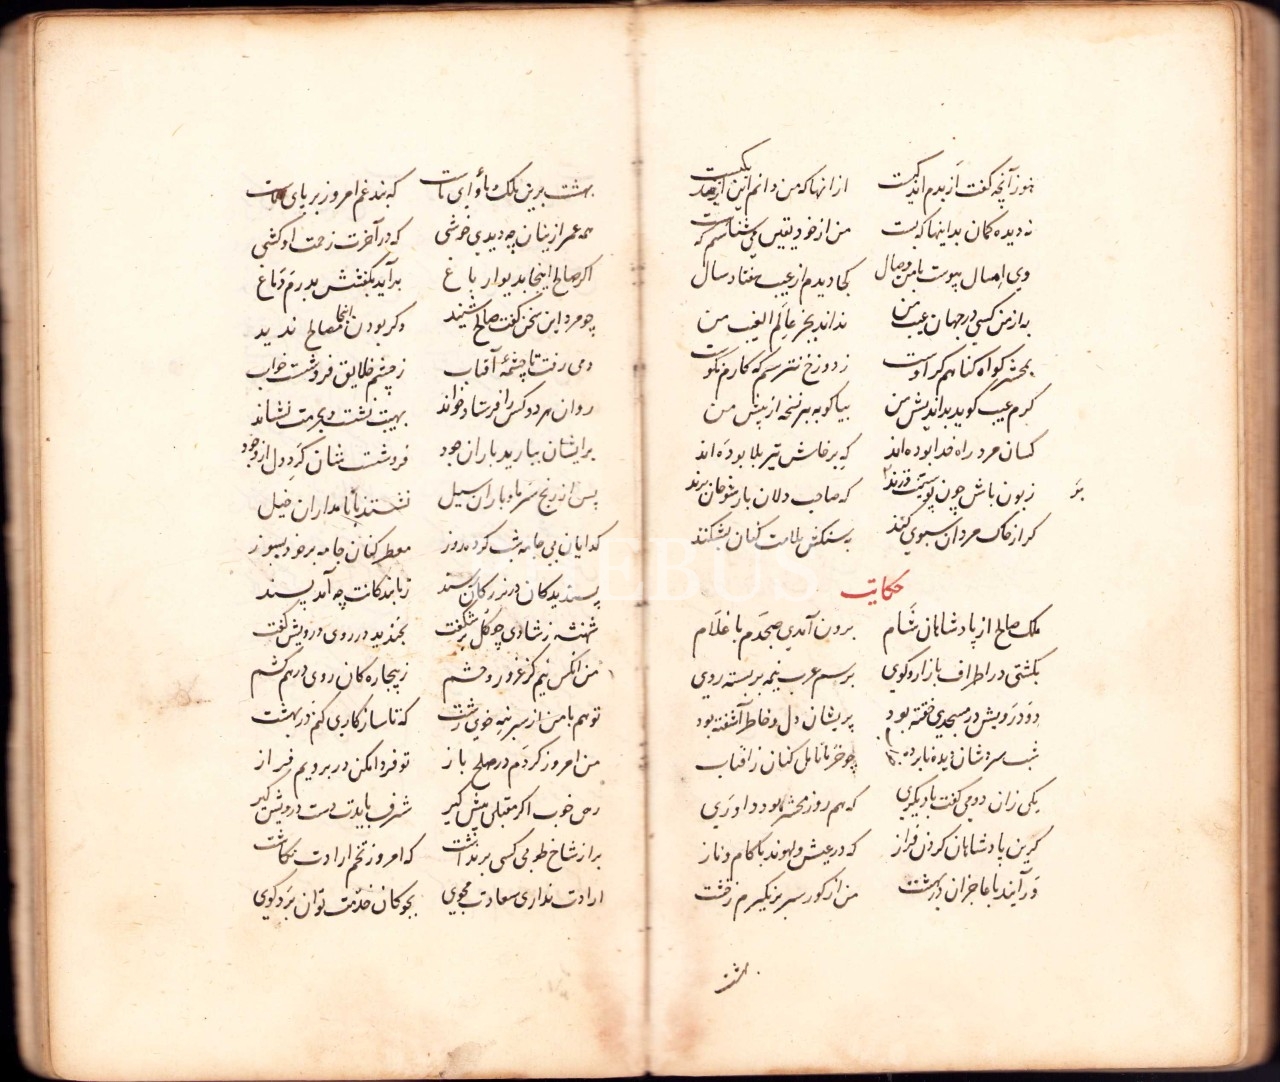 هنوز آنچه گفت از بدم اندکیست    از انها که من دانم این از صد یکیست
نه دیده کمان بد اینها که بست    من از خود یقین می شناسم که هست
وی امسال پیوست با من وصال    کجا دیدم از عیب هفتاد سال
به از من کسی در جهان عیب من    نداند بجز عالم الغیب من
بمحشر کواه کناهم کر اوست    ز دوزخ نترسم که کارم نکوست
کرم عیب کوید بد اندیش من    بیا کو ببر نسخه از پیش من
کسان مرد راه خدا بوده اند    که برخاش تیر بلا بوده اند
زبون باش چون پوستیت درند    که صاحب دلان بار شوخان برند
بر
کر از خاک مردان سبوی کنند    بسنکش ملامت کنان بشکنند
حکایت
ملک صالح از پادشاهان شام    برون آمدی صبحدم با غلام
بکشتی در اطراف بازار و کوی    برسم عرب نیمه بر بسته روی
دو درویش در مسجدی خفته بود    پریشان دل و خاطر آشفته بود
شب سردشان دیده نابرده    چو حربا تامل کنان ز افتاب
یکی زان دو می گفت با دیکری    که هم روز محشر بود داوری
کر این پادشاهان کردن فراز    که در عیش و لهوند با کام و ناز
در آیند با عاجزان در بهشت    من از کور سر بر نکیرم ز خشت
بهشت
بهشت برین ملک و مأوای ماست    که بند غم امروز بر پای ماست
همه عمر ازینان چه دیدی خوشی    که در آخرت زحمت او کشی
اکر صالح اینجا بدیوار باغ    بر آید بکفشش بدرم دماغ
چو مرد این سخن کفت صالح شنید    دکر بودن اینجا مصالح ندید
دمی رفت تا چشمه آفتاب    ز چشم خلایق فرو شست خواب
روان هر دو کس را فرستاد و خواند    بهیبت نشست و بحرمت نشاند
بر ایشان ببارید باران جود    فرو شست شان کرد دل از وجود
پس از رنج سرما و باران سیل    نشستند با نامداران خیل
کدایان بی جامه شب کرده روز    معطر کنان جامه بر خود بسوز
پسندیدکان در بزرکان رسند    ز ما بندکانت چه آمد پسند
شهنشه ز شادی چو کل بر شکفت    بخندید در روی درویش کفت
من آنکس نیم کز غرور و حشم    ز بیچاره کان روی درهم کشم
تو هم با من از سر بنه خوی زشت    که ناسازکاری کنم در بهشت
من امروز کردم در صلح باز    تو فردا مکن در برویم فراز
رهی خوب اکر مقبلی پیش کیر    شرف بایدت دست درویش کیر
بر از شاخ طوبی کسی بر نداشت    که امروز تخم ارادت نکاشت
ارادت نداری سعادت مجوی    بچوکان خدمت توان برد کوی
PHEBUS